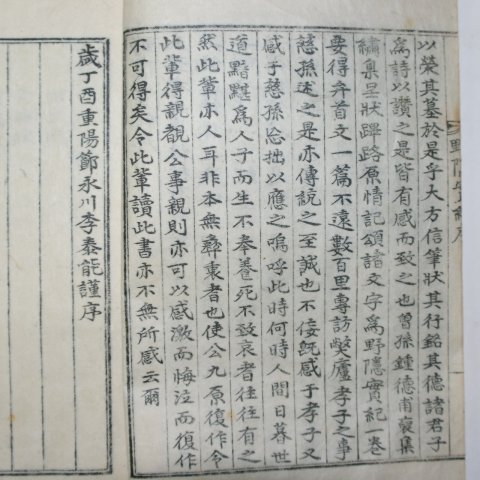 以榮其墓於是乎大方信筆狀其行銘其德諸君子
為詩以讚之是皆有感而致之也曾孫鍾德甫裒集
繡集呈狀蹕路原情記頌諸文字為野隱實紀一卷
要得弁首文一篇不遠數百里專訪弊廬孝子之事
慈孫述之是亦傳說之至誠也不佞既感于孝子又
感于慈孫忘拙以應之嗚呼此時何時人間日暮世
道黯黮為人子而生不奉養死不致哀者往往有之
然此輩亦人耳非本無彝衷者也使公九原復作令
此輩得親覩公事親則亦可以感激而悔泣而復作
不可得矣令此輩讀此書亦不無所感云爾
歲丁酉重陽節永川李泰能謹序
野隱實紀序